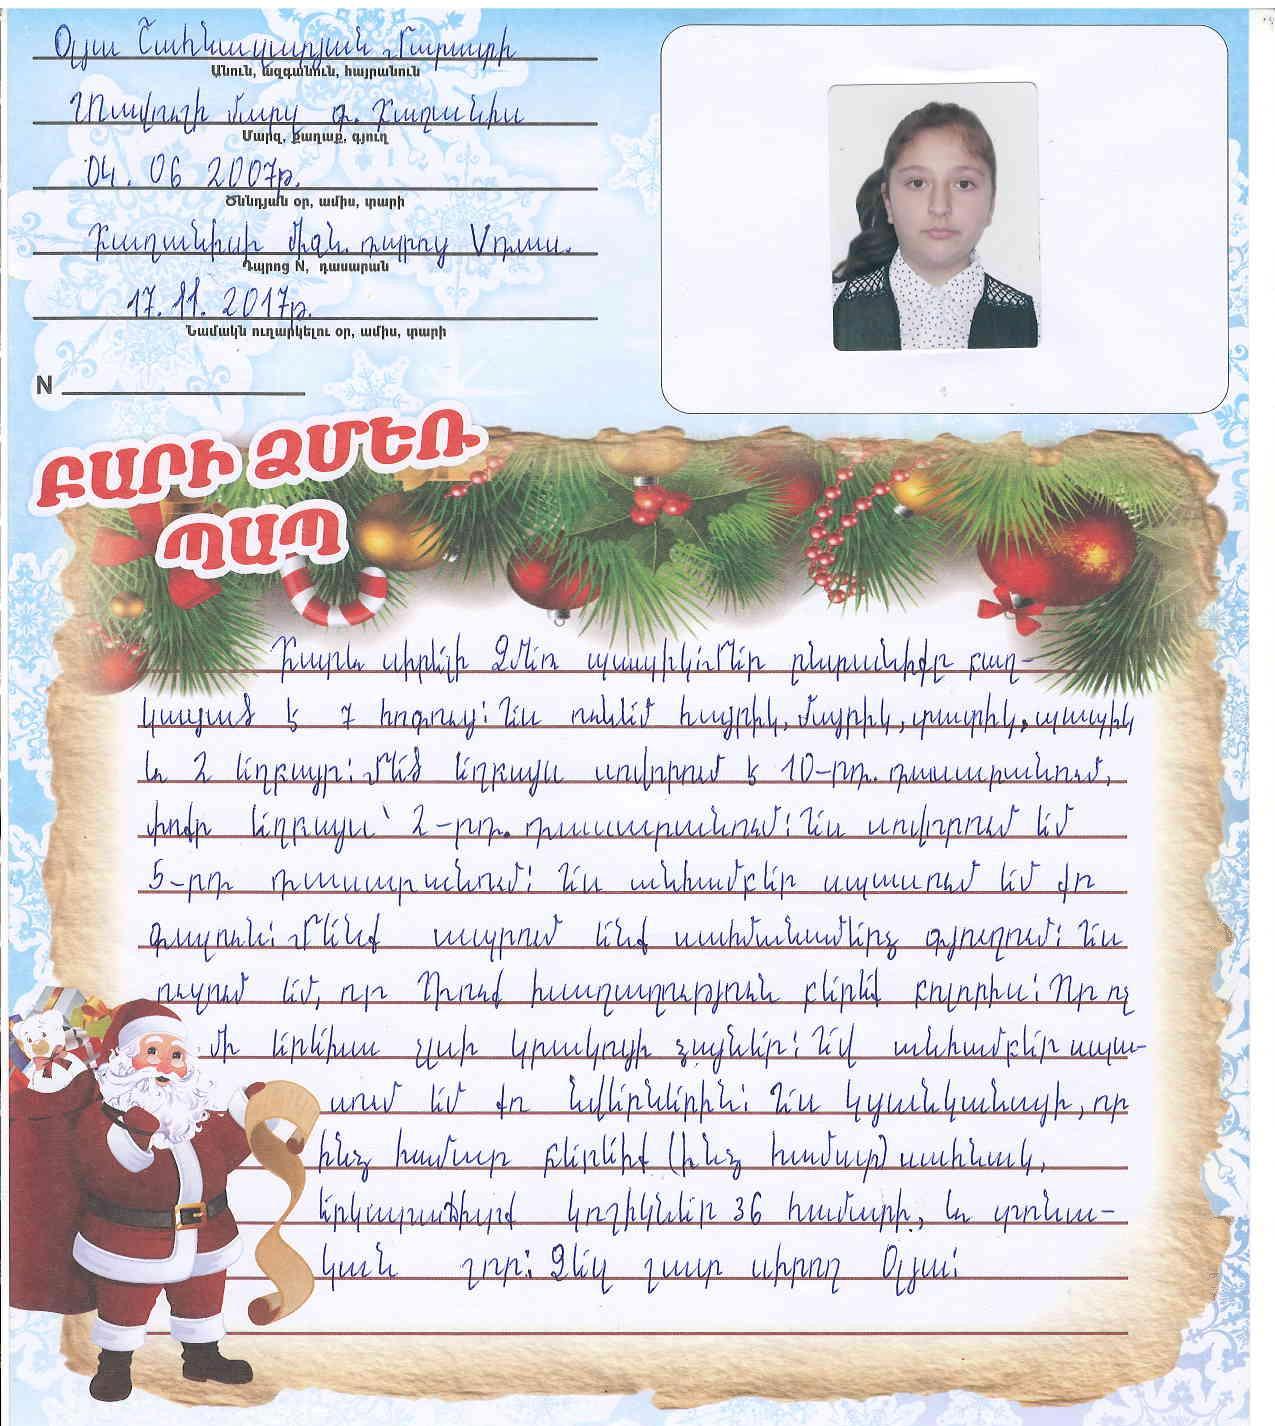 Օլյա Շահնազարյան Մարատի
Անուն, ազգանուն, հայրանուն
Տավուշի մարզ գ. Բաղանիս
Մարզ, քաղաք, գյուղ
04. 06 2007թ.
Ծննդյան օր, ամիս, տարի
Բաղանիսի միջն. դպրոց V դաս.
Դպրոց N, դասարան
17. 11. 2017թ.
Նամակն ուղարկելու օր, ամիս, տարի
N
ԲԱՐԻ ՁՄԵՌ
ՊԱՊ
Բարև սիրելի Ձմեռ պապիկ։ Մեր ընտանիքը բաղ-
կացած է 7 հոգուց։ Ես ունեմ հայրիկ, մայրիկ, տատիկ, պապիկ
և 2 եղբայր։ Մեծ եղբայս սովորում է 10-րդ. դասարանում,
փոքր եղբայս՝ 2-րդ. դասարանում։ Ես սովորում եմ
5-րդ դասարանում։ Ես անհամբեր սպասում եմ քո
գալուն։ Մենք ապրում ենք սահմանամերձ գյուղում։ Ես
ուզում եմ, որ Դուք խաղաղություն բերեք բոլորիս։ Որ ոչ
մի երեխա չլսի կրակոցի ձայներ։ Եվ անհամբեր սպա-
սում եմ քո նվերներին։ Ես կցանկանայի, որ
ինձ համար բերեիք (ինձ համար) սահնակ,
երկարաճիտք կոշիկներ 36 համարի, և տոնա-
կան շոր։ Ձեզ շատ սիրող Օլյա։